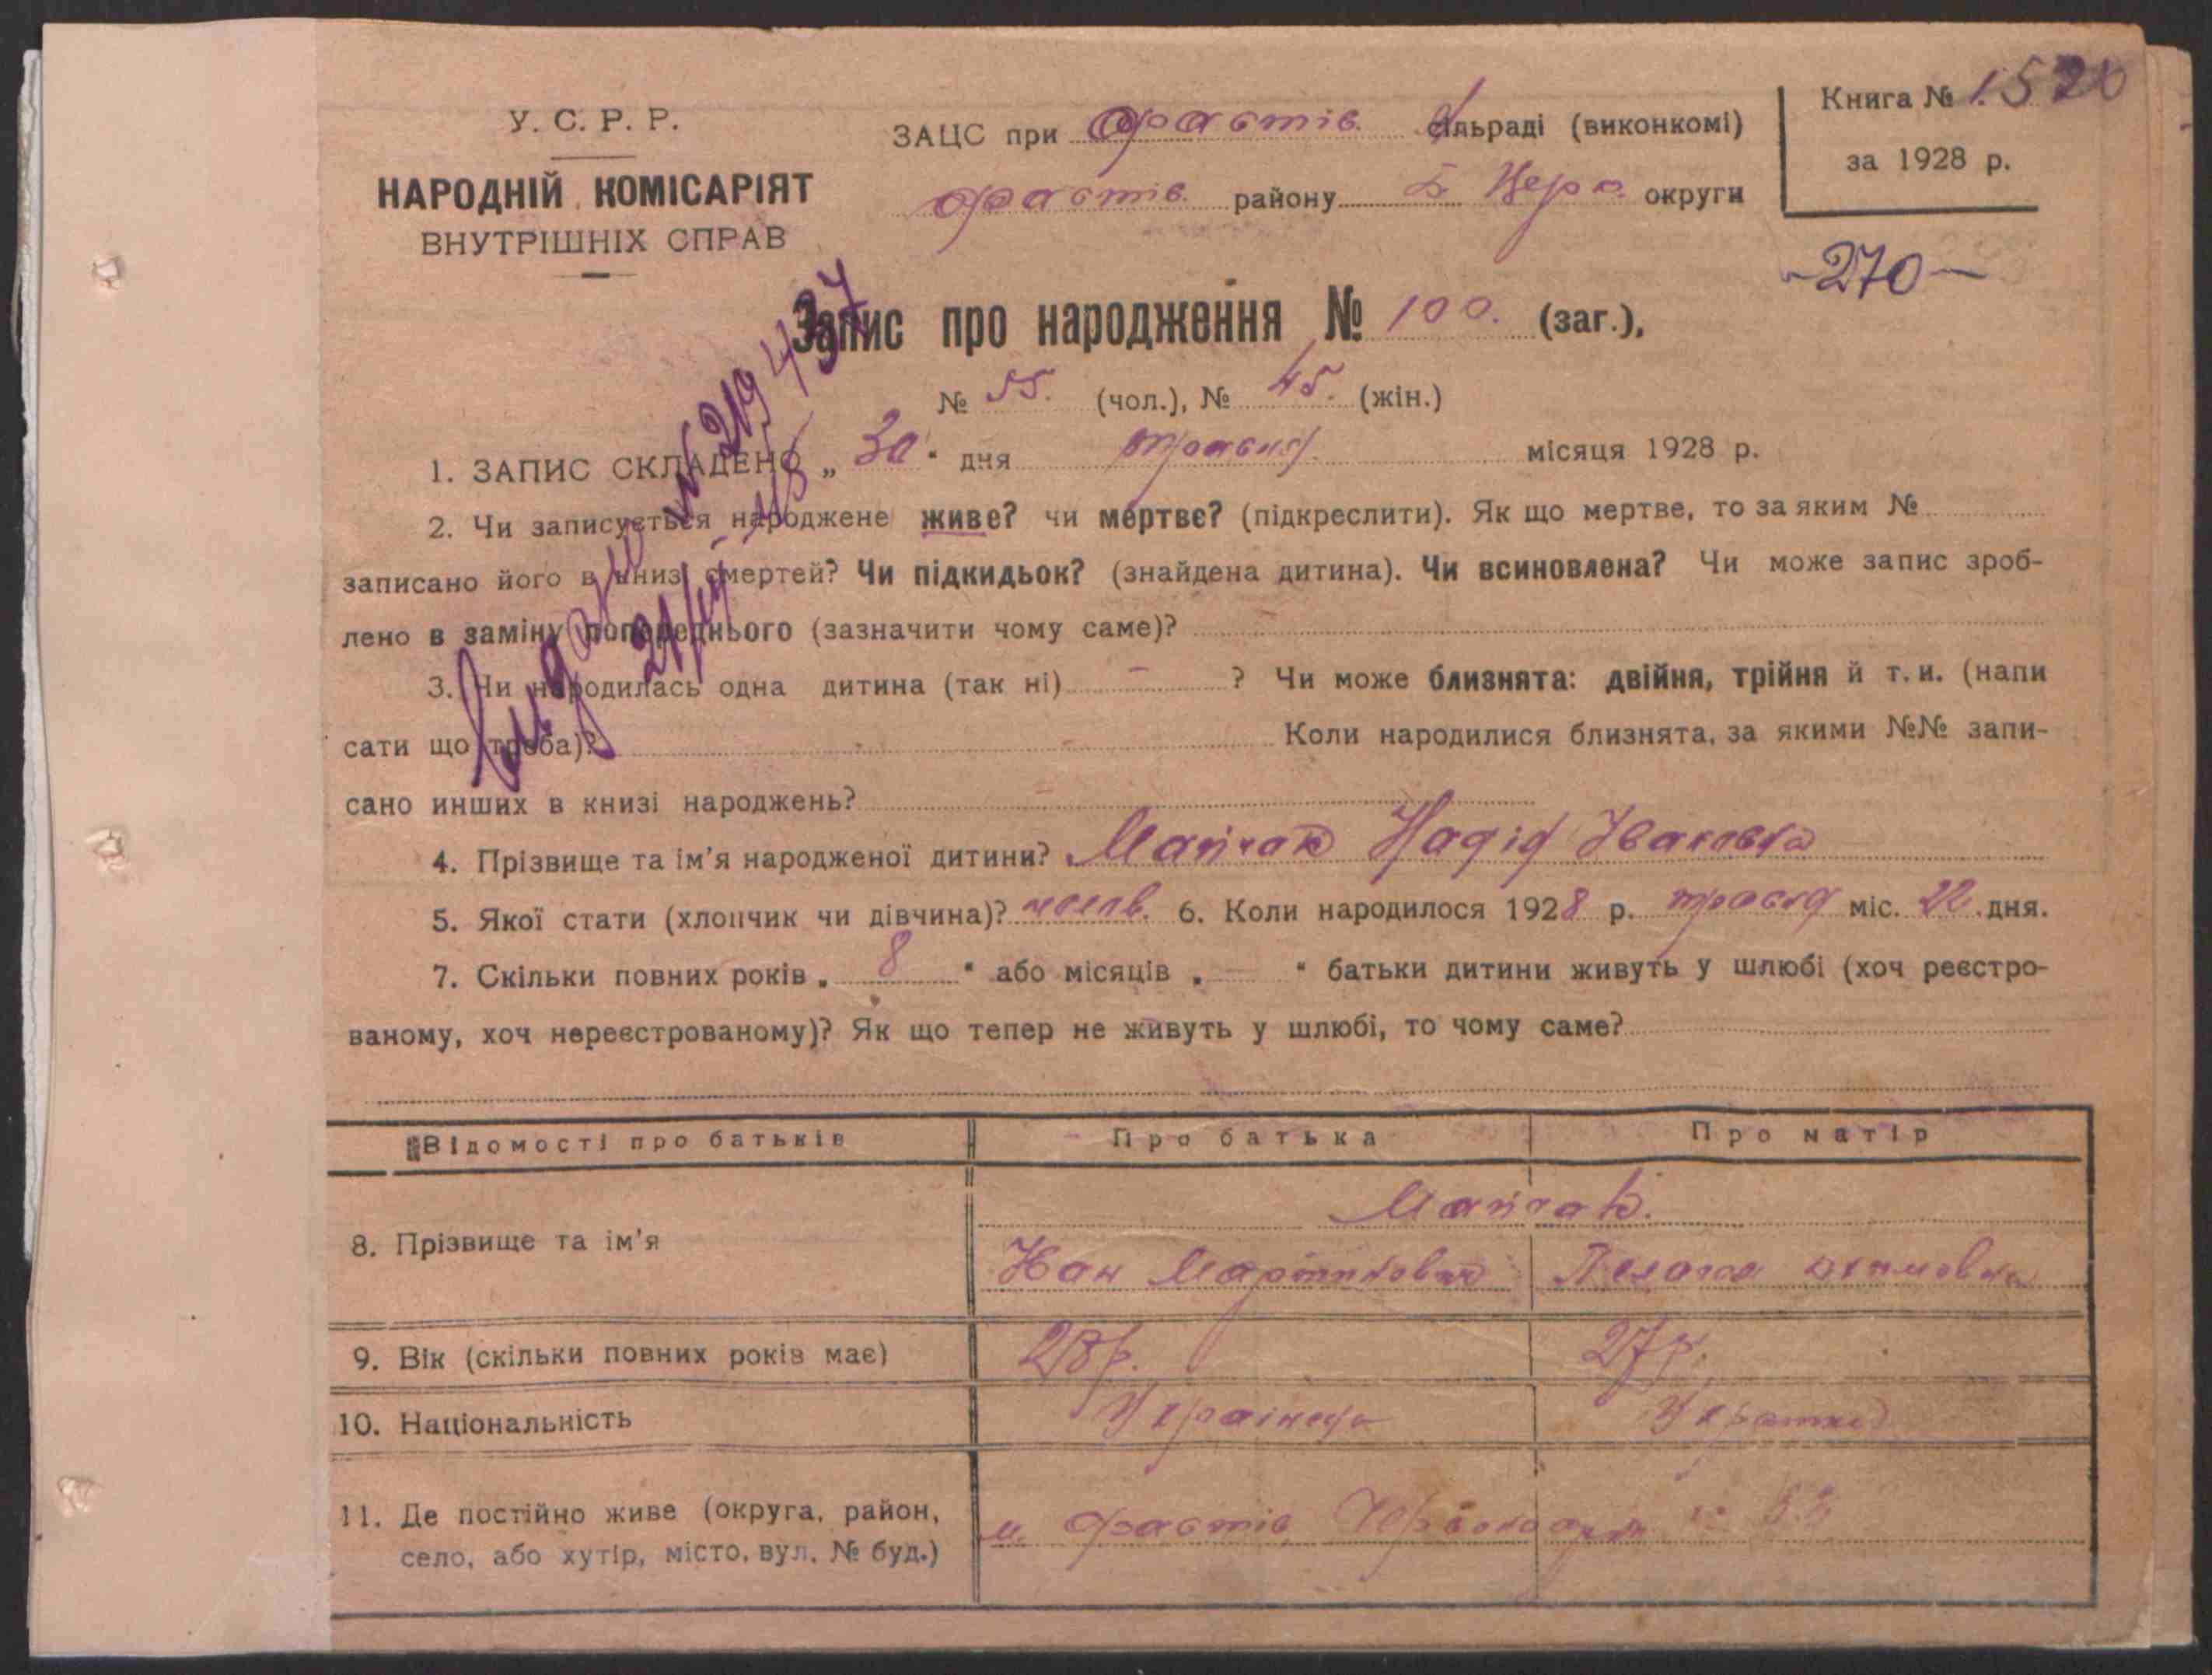 У. С. Р. Р.
НАРОДНІЙ КОМІСАРІЯТ
ВНУТРІШНІХ СПРАВ
ЗАЦС при Фастів. сільраді (виконкомі)
Фастів. району Б Церк. округи
Книга №
за 1928 р.
-270-
Запис про народження № 100. (заг.),
№ 55. (чол.), № 45. (жін.)
1. ЗАПИС СКЛАДЕНО „ 30 " дня травня місяця 1928 р.
2. Чи записується народжене живе? чи мертве? (підкреслити). Як що мертве, то за яким №
записано його в книзі смертей? Чи підкидьок? (знайдена дитина). Чи всиновлена? Чи може запис зроб-
лено в заміну попереднього (зазначити чому саме)?
3. Чи народилась одна дитина (так ні) – ? Чи може близнята: двійня, трійня й т. и. (напи
сати що треба)? Коли народилися близнята, за якими №№ запи-
сано инших в книзі народжень?
4. Прізвище та ім'я народженої дитини? Надія Івановна
5. Якої стати (хлопчик чи дівчина)? 6. Коли народилося 1928 р. травня міс. 22 дня.
7. Скільки повних років „ 8 " або місяців „ — " батьки дитини живуть у шлюбі (хоч реєстро-
ваному, хоч нереєстрованому)? Як що тепер не живуть у шлюбі, то чому саме?
Відомості про батьків Про батька Про матір
8. Прізвище та ім'я
Іван Мартинович Пелагея
9. Вік (скільки повних років має) 28 р. 27 р.
10. Національність Українець Українка
11. Де постійно живе (округа, район,
село, або хутір, місто, вул. № буд.)
м. Фастів